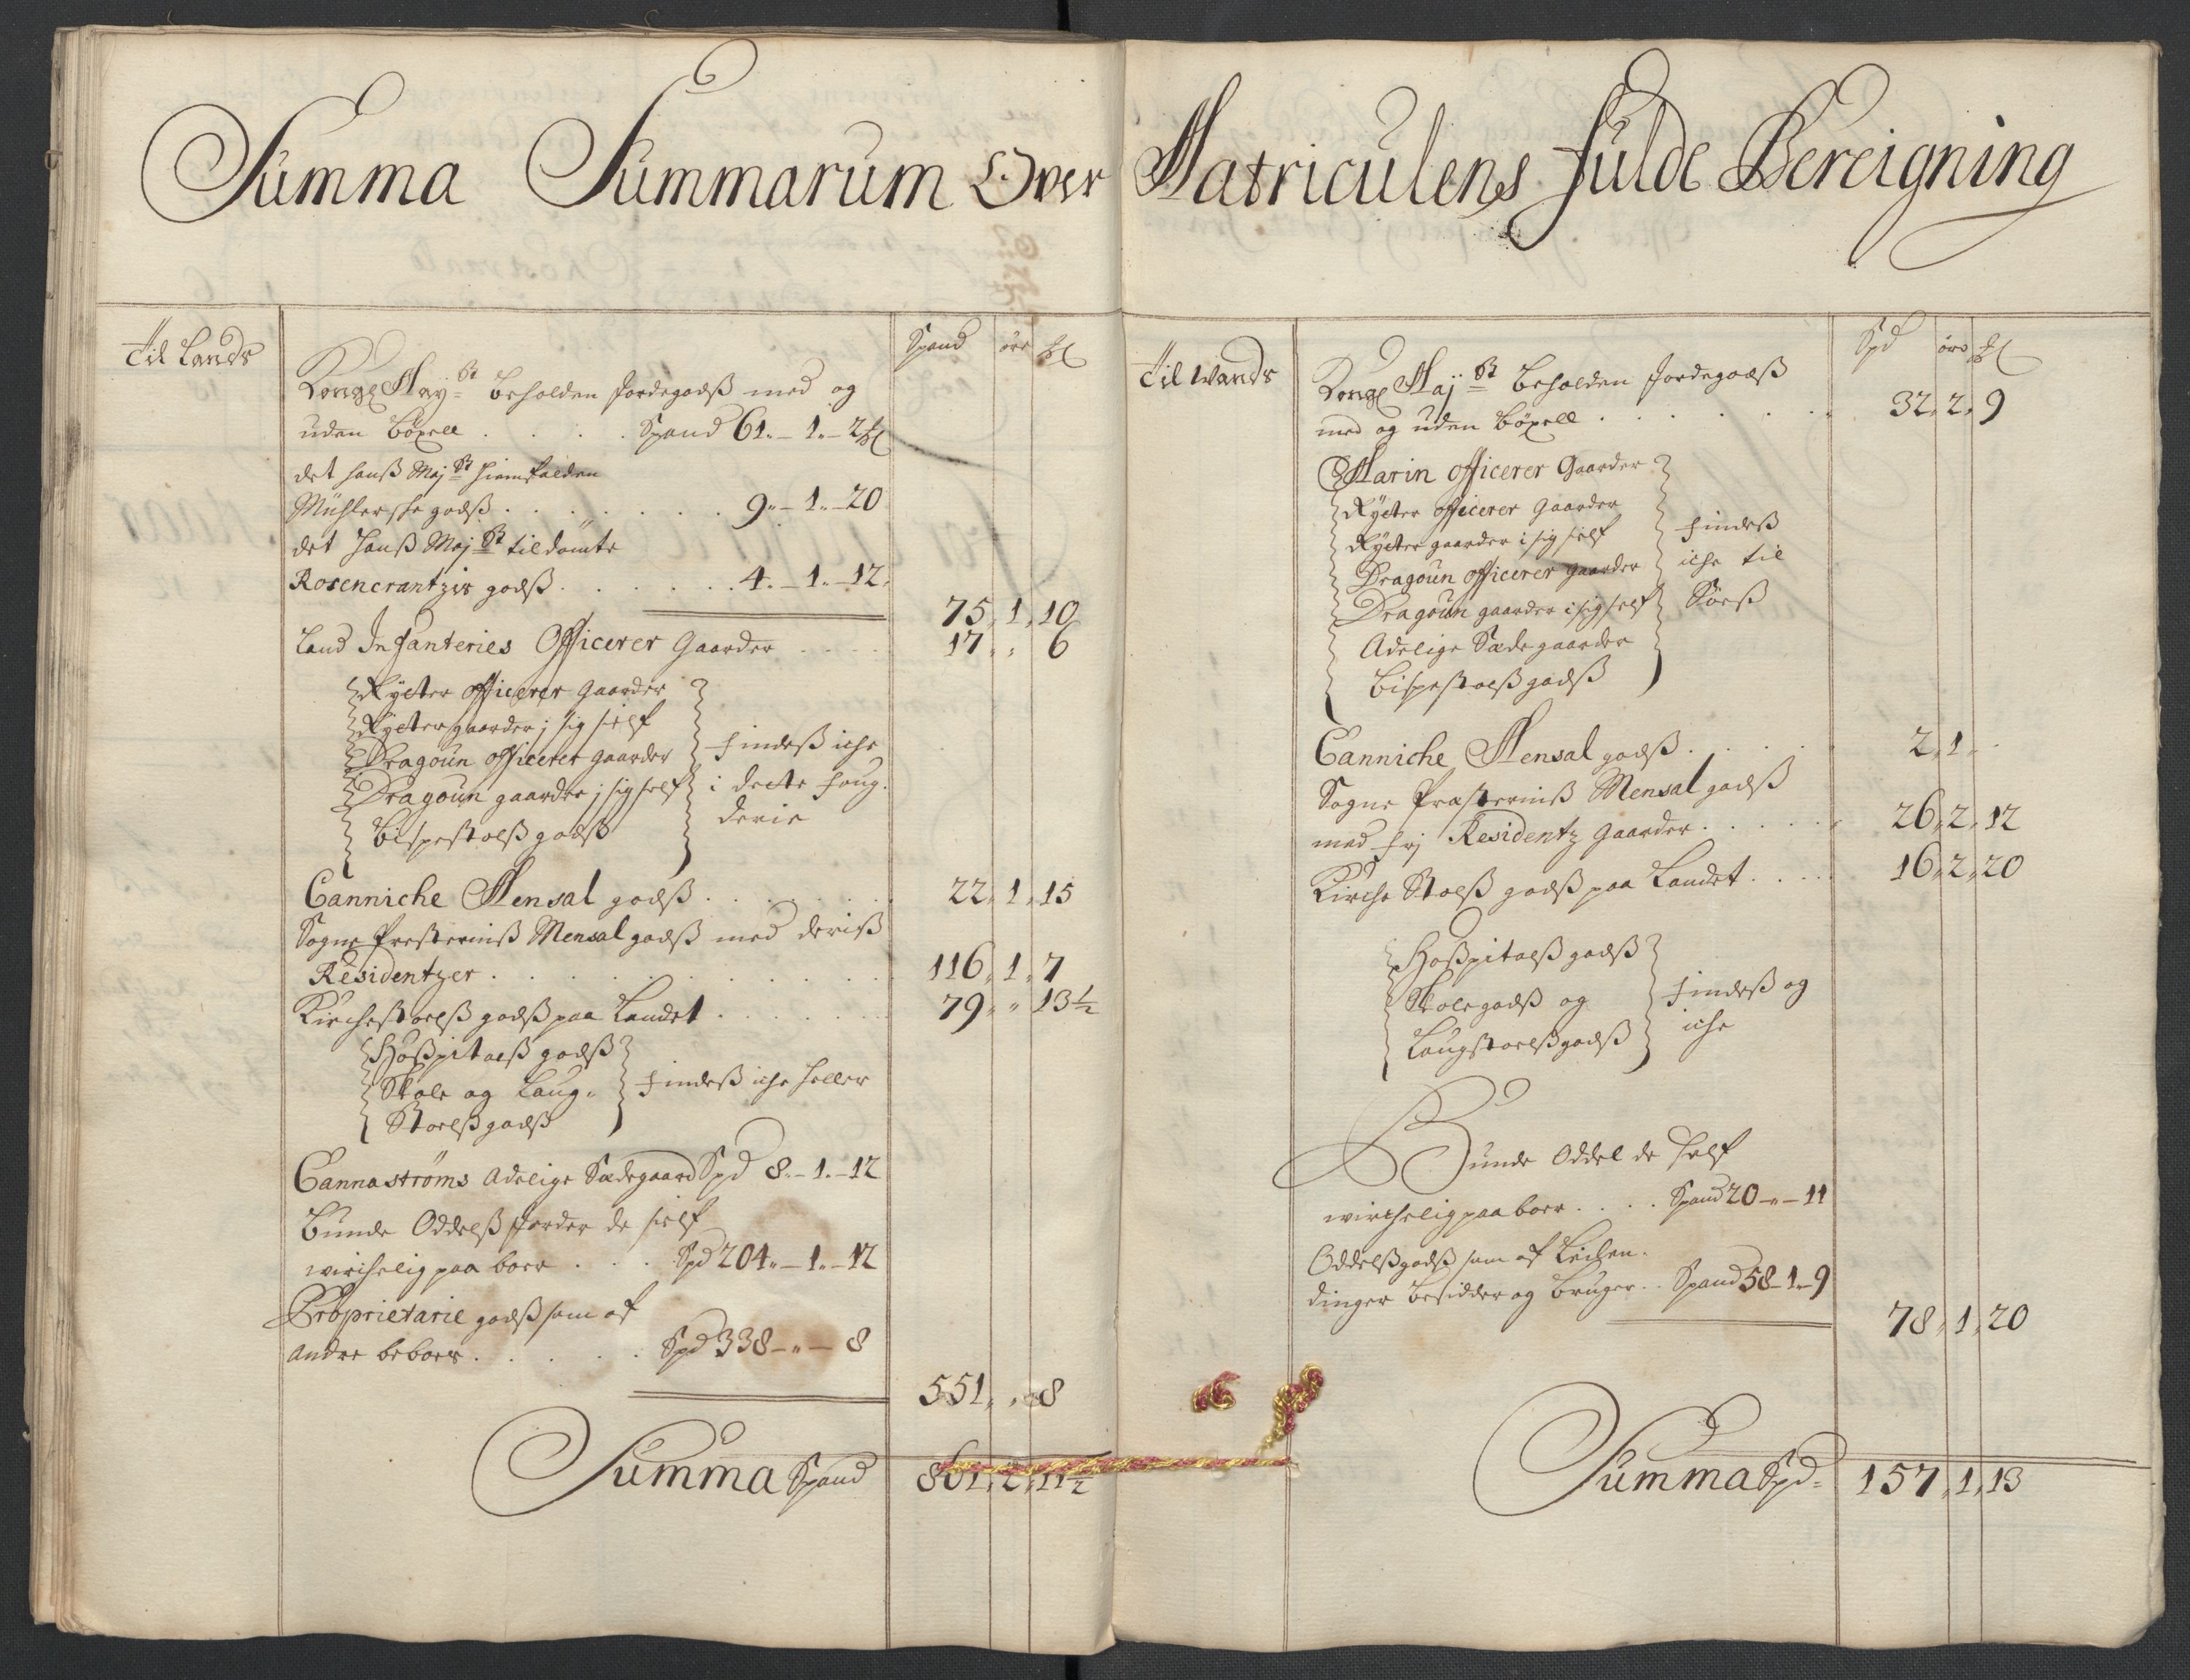 Summa Summarum Over Matriculens fulde Bereigning
Til Lands
Spand øre
Kongl May st beholden Jordegodß med og
uden böxell . . . . Spand 61.-1.-2
det hanß Maj st hiemfalden
Mühlerske godß . . . . . . . 9.-1.-20
det hanß Maj st tildömte
Rosencrantzis godß . . . . . . 4.-1.-12.
75, 1, 10
Land Infanteries Officerer Gaarder . . . . 17 " " 6
Rytter officerer gaarder
Rytter gaarder j sig sielf
Dragoun officerer gaarder
Dragoun gaarder j sig self
Bispestolß godß
findeß iche
i dette foug:
derie
Canniche Mensal godß . . . . . . 22, 1, 15
Sogne Presterniß Mensal godß med deriß
Residentzer . . . . . . . . . 116, 1, 7
Kirchestoelß godß paa Landet . . . . . . 79 " " 13½
Hoßpitalß godß
Skole og Laug-
Stoelß godß
findeß iche heller
Cannaströms Adelige Sædegaard Spd 8.-1.-12
Bunde Oddelß Jorder de sielf
wirchelig paa boer . . . Spd 204.-1.-12
Proprietarie godß som af
andre beboes . . . . . Spd 338-"-8
551, " 8
Summa Spand 861, 2, 11½
Til Wands
Spd øre
Kongl Maj st beholden Jordegodß
med og uden böxell . . . . . . 32, 2, 9
Marin officerer Gaarder
Rytter officerer Gaarder
Rytter gaarder i sig self
Dragoun officerer gaarder
Dragoun gaarder i sig self
Adelige Sædegaarder
Bispestoelß godß
findeß
iche til
Söeß
Canniche Mensal godß . . . . . 2, 1, .
Sogne Præsterniß Mensal godß
med frj Residentz Gaarder . . . . . 26, 2, 12
Kirche Stoelß godß paa Landet . . . . 16, 2, 20
Hoßpitalß godß
Skole godß og
Laugstoelß godß
findeß og
iche
Bunde Oddel de self
wirchelig paa boer . . . . Spand 20-"-11
Oddelß godß som af Leilen-
dinger besidder og bruger . . Spand 58-1-9
78, 1, 20
Summa Spd- 157, 1, 13